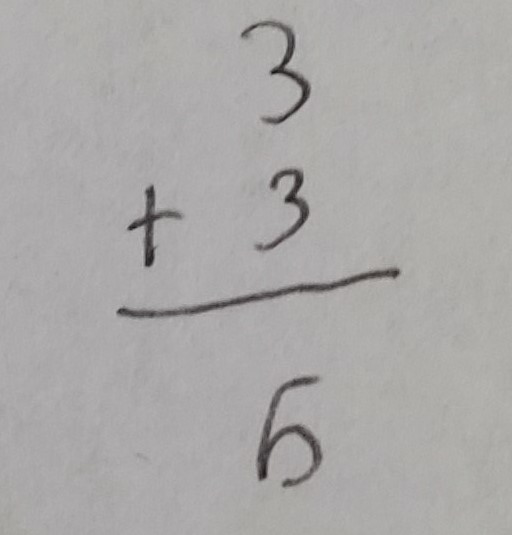 3
+ 3
6